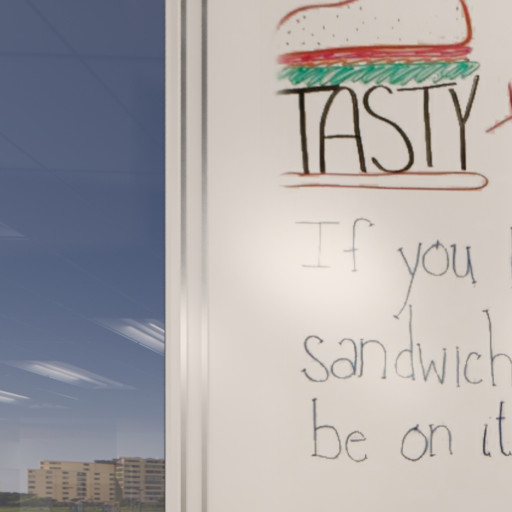 TASTY
If you
sandwich
be on it